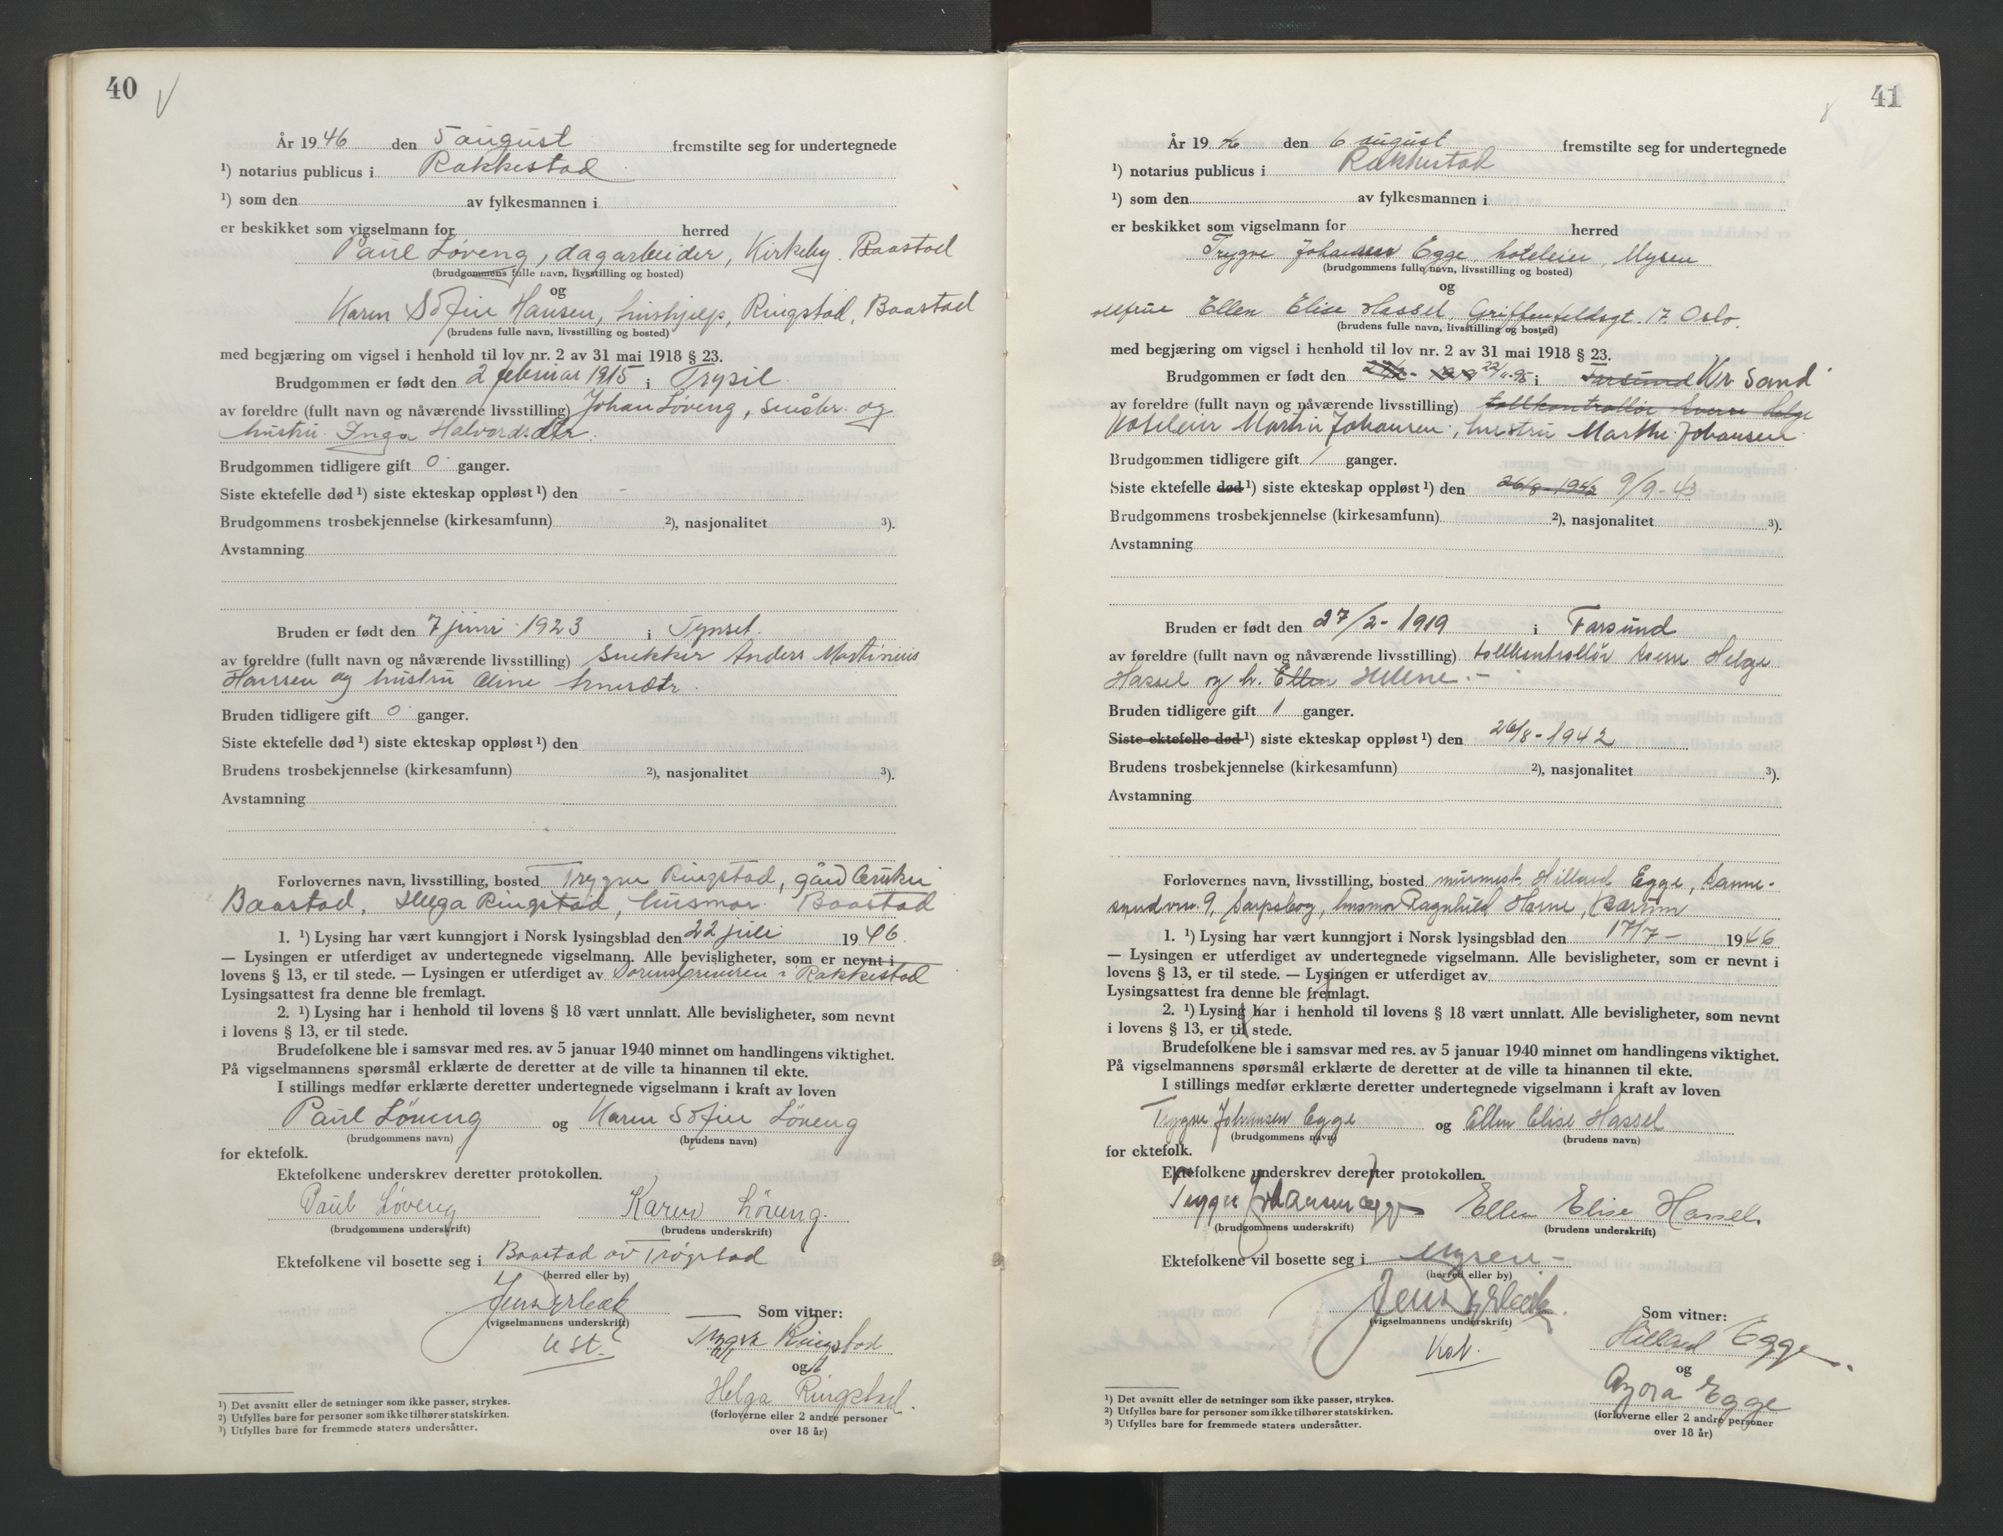 40
År 1946 den 5 august fremstilte seg for undertegnede
¹) notarius publicus i Rakkestad
¹) som den av fylkesmannen i
er beskikket som vigselmann for herred
Paul Løveng, dagarbeider, Kirkeby. Baastad
(brudgommens fulle navn, livsstilling og bosted)
og
Karen Sofie Hansen, hushjelp, Ringstad, Baastad
(brudens fulle navn, livsstilling og bosted)
med begjæring om vigsel i henhold til lov nr. 2 av 31 mai 1918 § 23.
Brudgommen er født den 2 februar 1915 i Trysil.
av foreldre (fullt navn og nåværende livsstilling) Johan Løveng, småbr. og
hustru Inga Halvordsdtr.
Brudgommen tidligere gift 0 ganger.
Siste ektefelle død ¹) siste ekteskap oppløst ¹) den -
Brudgommens trosbekjennelse (kirkesamfunn) ²), nasjonalitet ³).
Avstamning
Bruden er født den 7 juni 1923 i Tynset.
av foreldre (fullt navn og nåværende livsstilling) snekker Anders Martinius
Hansen og hustru Oline
Bruden tidligere gift 0 ganger.
Siste ektefelle død ¹) siste ekteskap oppløst ¹) den
Brudens trosbekjennelse (kirkesamfunn) ²), nasjonalitet ³).
Avstamning
Forlovernes navn, livsstilling, bosted Trygve Ringstad, gårdbruker
Baastad, Helga Ringstad, husmor. Baastad
1. ¹) Lysing har vært kunngjort i Norsk lysingsblad den 22 juli 1946.
— Lysingen er utferdiget av undertegnede vigselmann. Alle bevisligheter, som er nevnt i
lovens § 13, er til stede. — Lysingen er utferdiget av Sorenskriveren i Rakkestad
Lysingsattest fra denne ble fremlagt.
2. ¹) Lysing har i henhold til lovens § 18 vært unnlatt. Alle bevisligheter, som nevnt
i lovens § 13, er til stede.
Brudefolkene ble i samsvar med res. av 5 januar 1940 minnet om handlingens viktighet.
På vigselmannens spørsmål erklærte de deretter at de ville ta hinannen til ekte.
I stillings medfør erklærte deretter undertegnede vigselmann i kraft av loven
Paul Løveng og Karen Sofie Løveng
(brudgommens navn) (brudens navn)
for ektefolk.
Ektefolkene underskrev deretter protokollen.
Paul Løveng Karen Løveng.
(brudgommens underskrift) (brudens underskrift)
Ektefolkene vil bosette seg i Baastad av Trøgstad
(herred eller by)
Som vitner:
(vigselmannens underskrift)
Trygve Ringstad
og
Helga Ringstad.
(forloverne eller 2 andre personer
over 18 år)
¹) Det avsnitt eller de setninger som ikke passer, strykes.
²) Utfylles bare for personer som ikke tilhører statskirken.
³) Utfylles bare for fremmede staters undersåtter.
41
År 1946 den 6 august fremstilte seg for undertegnede
¹) notarius publicus i Rakkestad
¹) som den av fylkesmannen i
er beskikket som vigselmann for herred
Trygve Johansen Egge, hoteleier, Mysen
(brudgommens fulle navn, livsstilling og bosted)
og
Ellen Elise Hassel, Griffenfeldsgt. 17. Oslo.
(brudens fulle navn, livsstilling og bosted)
med begjæring om vigsel i henhold til lov nr. 2 av 31 mai 1918 § 23.
Brudgommen er født den 22/11-95 i Farsund Kr. Sand
av foreldre (fullt navn og nåværende livsstilling) tollkontrollør Sverre Helge
Hoteleier Martin Johansen, hustru Marthe Johansen
Brudgommen tidligere gift 1 ganger.
Siste ektefelle død ¹) siste ekteskap oppløst ¹) den 26/8-1942 9/9-43
Brudgommens trosbekjennelse (kirkesamfunn) ²), nasjonalitet ³).
Avstamning
Bruden er født den 27/2-1919 i Farsund
av foreldre (fullt navn og nåværende livsstilling) tollkontrollør Sverre Helge
Hassel og h. Ellen Helene. -
Bruden tidligere gift 1 ganger.
Siste ektefelle død ¹) siste ekteskap oppløst ¹) den 26/8-1942
Brudens trosbekjennelse (kirkesamfunn) ²), nasjonalitet ³).
Avstamning
Forlovernes navn, livsstilling, bosted murmest. Hillard Egge, Sanne-
9, Sarpsborg, husmor Ragnhild Horne, Bærum
1. ¹) Lysing har vært kunngjort i Norsk lysingsblad den 17/7- 1946
— Lysingen er utferdiget av undertegnede vigselmann. Alle bevisligheter, som er nevnt i
lovens § 13, er til stede. — Lysingen er utferdiget av
Lysingsattest fra denne ble fremlagt.
2. ¹) Lysing har i henhold til lovens § 18 vært unnlatt. Alle bevisligheter, som nevnt
i lovens § 13, er til stede.
Brudefolkene ble i samsvar med res. av 5 januar 1940 minnet om handlingens viktighet.
På vigselmannens spørsmål erklærte de deretter at de ville ta hinannen til ekte.
I stillings medfør erklærte deretter undertegnede vigselmann i kraft av loven
Trygve Johansen Egge og Ellen Elise Hassel
(brudgommens navn) (brudens navn)
for ektefolk.
Ektefolkene underskrev deretter protokollen.
Trygve Johansen Egge Ellen Elise Hassel.
(brudgommens underskrift) (brudens underskrift)
Ektefolkene vil bosette seg i Mysen -
(herred eller by)
Som vitner:
(vigselmannens underskrift)
Hillard Egge.
og
Egge
(forloverne eller 2 andre personer
over 18 år)
¹) Det avsnitt eller de setninger som ikke passer, strykes.
²) Utfylles bare for personer som ikke tilhører statskirken.
³) Utfylles bare for fremmede staters undersåtter.